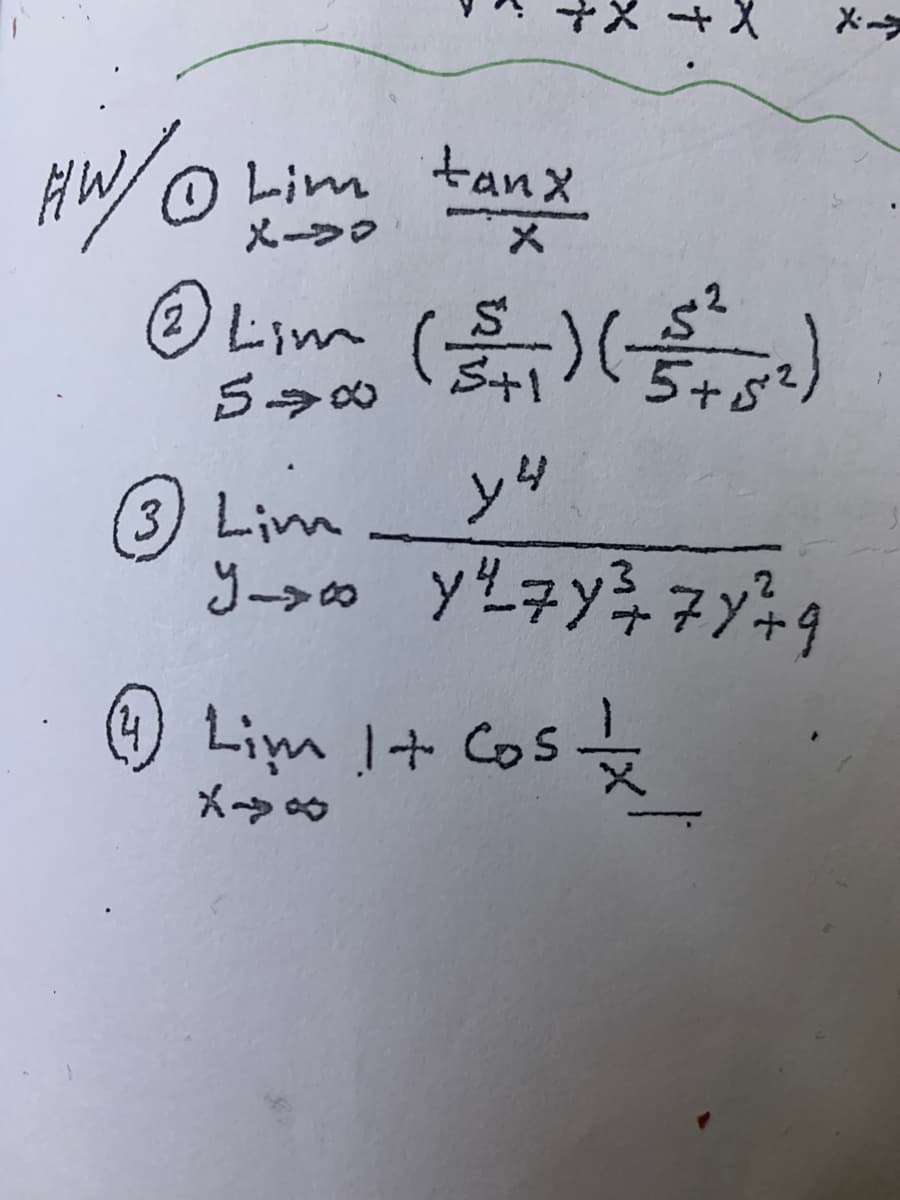 +x + x x→
HW/ ① Lim tanx / x
x→0
② Lim (S/S+1)(s²/5+s²)
S→∞
③ Lim y⁴ / y⁴-7y³+7y²+9
y→∞
④ Lim 1+ Cos 1/x
x→∞